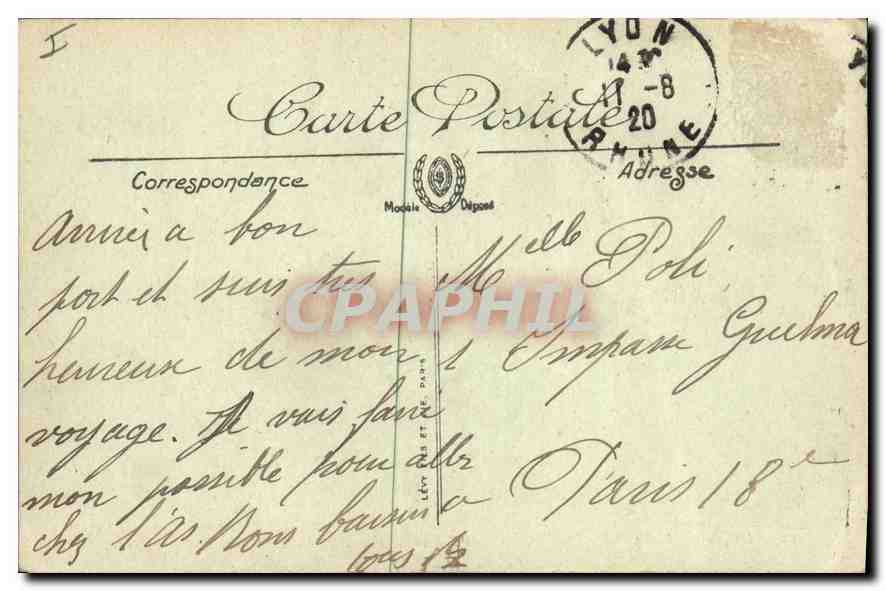 I
LYON
14 30
11 -8
20
RHONE
Carte Postale
Correspondance
Adresse
Modèle Déposé
Arrivée a bon
port et suis tres
heureux de mon
voyage. Je vais faire
mon possible pour aller
chez l'As. Bons baisers a
tous
Melle Poli
1 Impasse Guelma
Paris 18e
LÉVY FILS ET CIE, PARIS
CPAPHIL